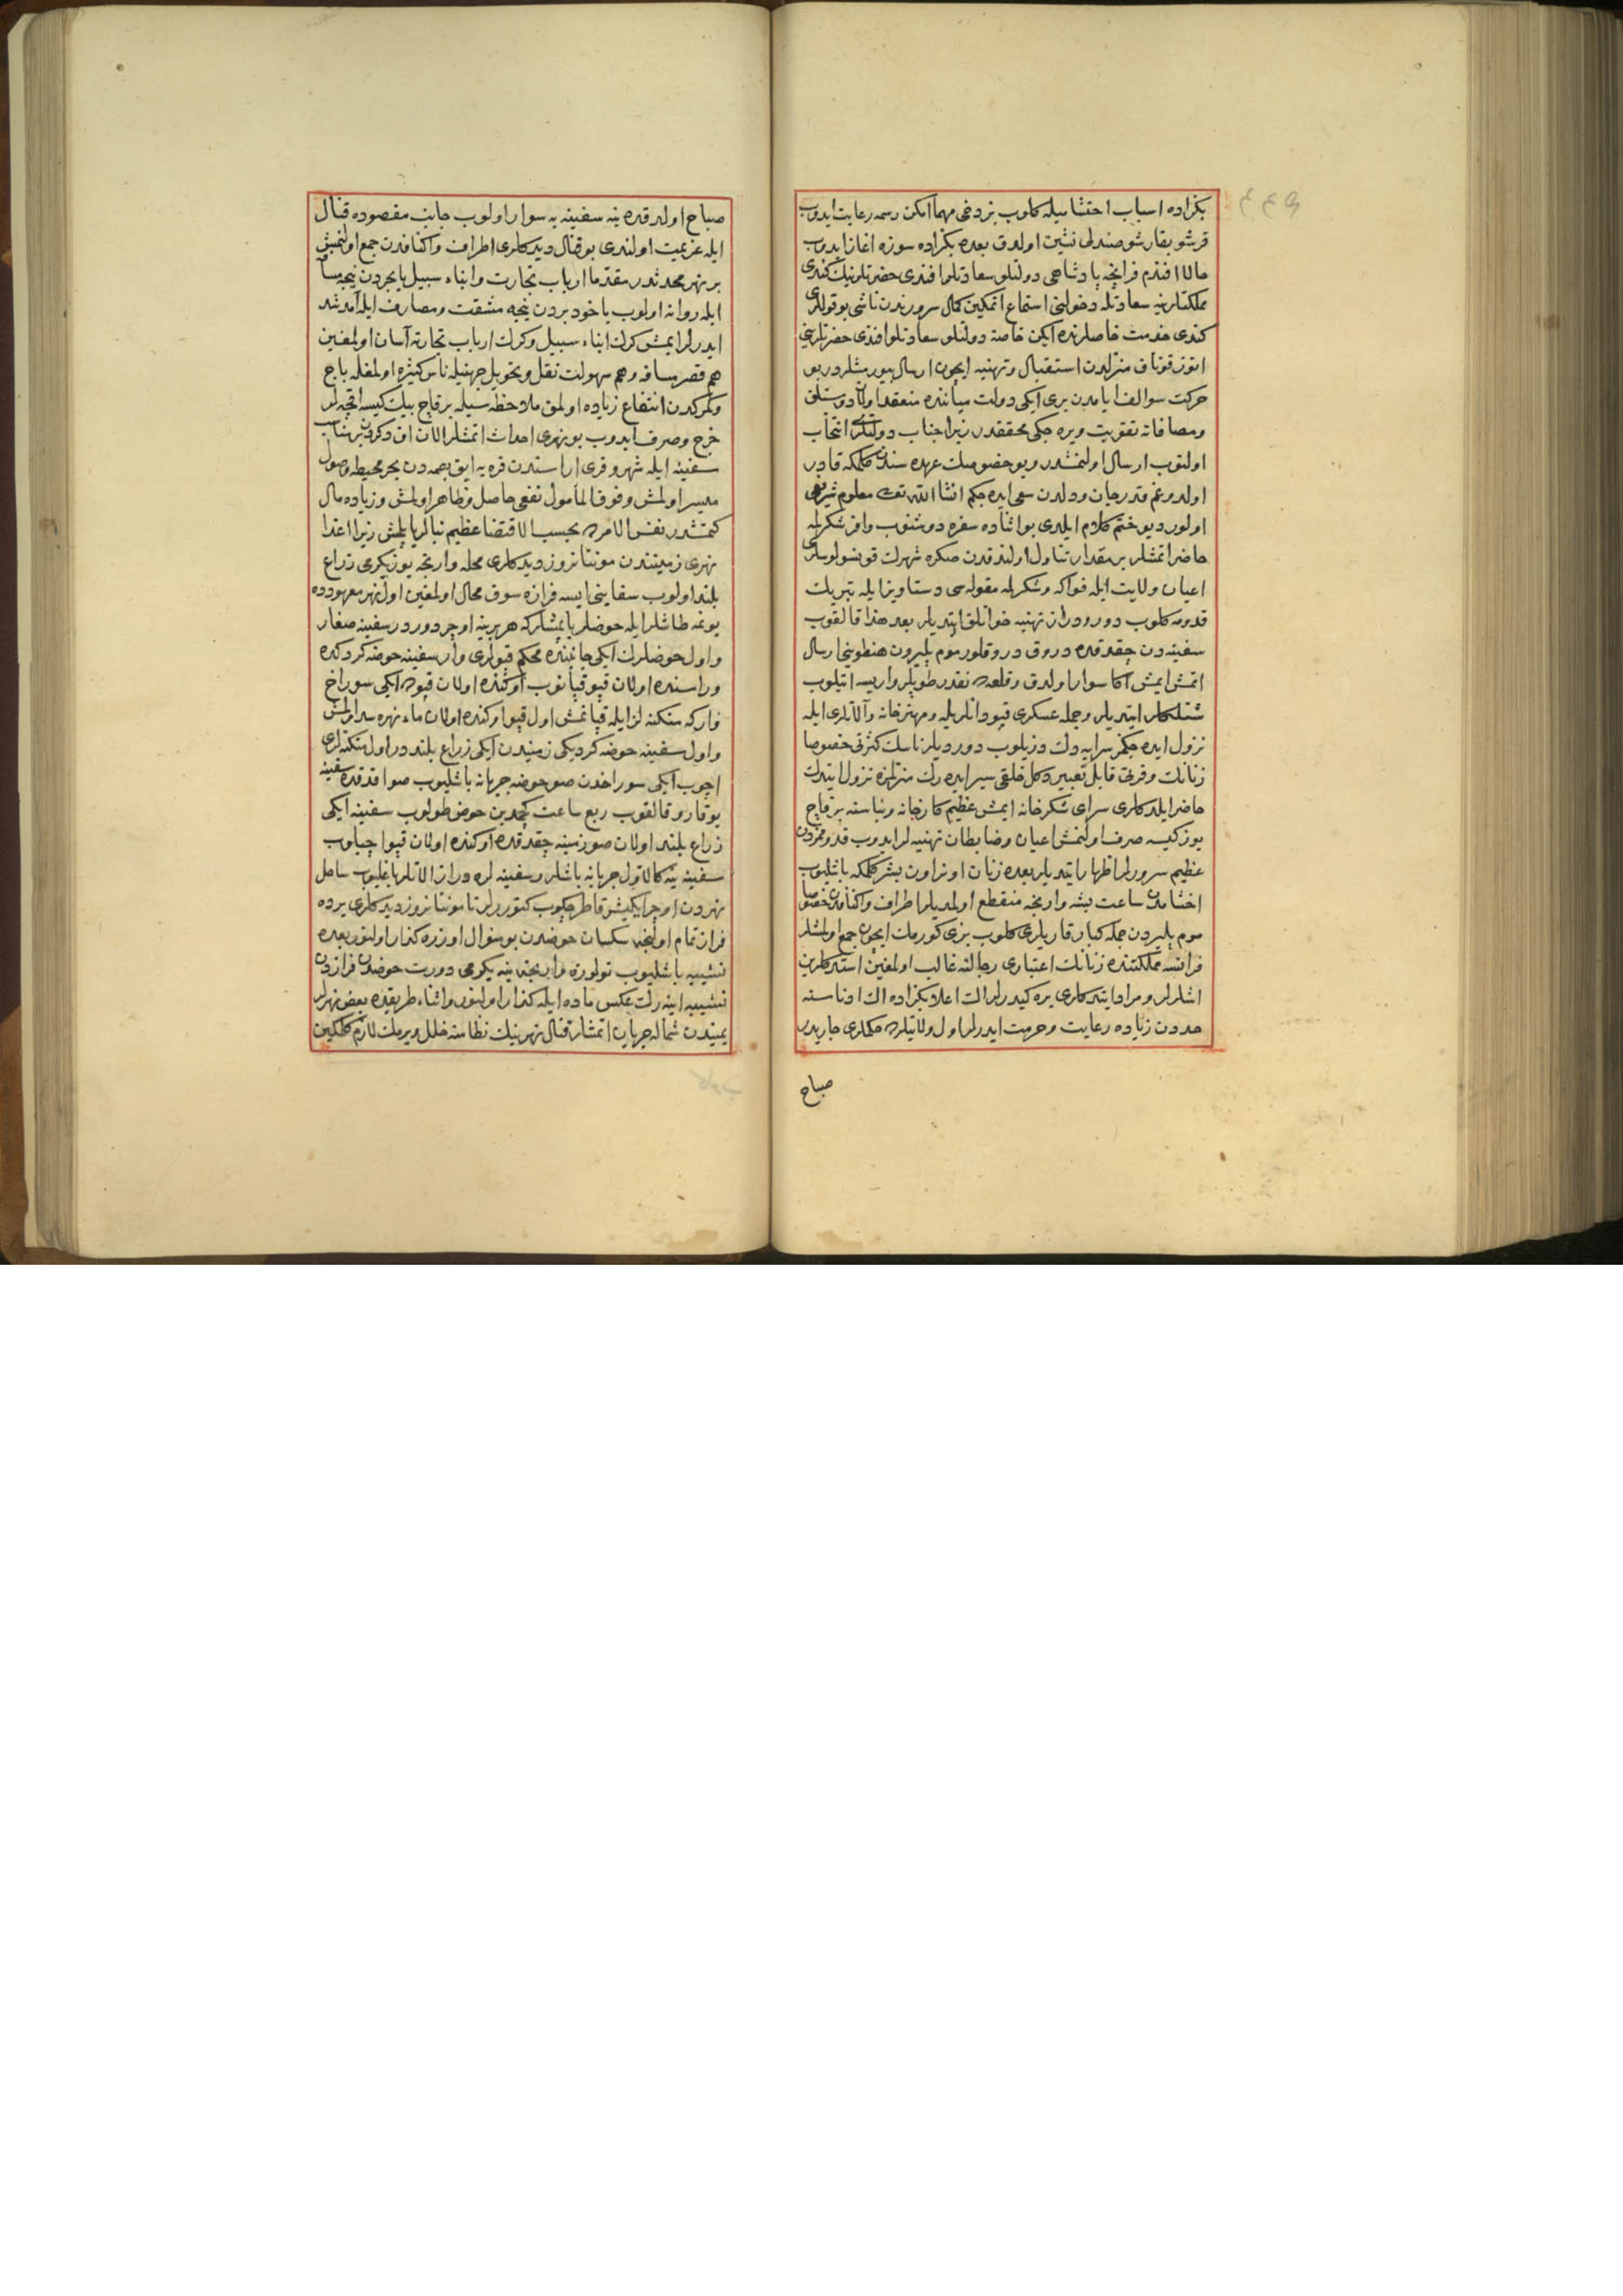 بكزاده اسباب احتشامیله كلوب بز دخی مهما امكن رسم رعایت ایدوب
قرشو بقارشو صندلی نشین اولدق بعده بكزاده سوزه اغاز ایدوب
حالا افندم فرانچه پادشاهی دولتلو سعادتلو افندی حضرتلرینك كندی
مملكتلرینه سعادتله دخولنی استماع اتمكین كمال سرورندن ناشی بو قوللری
كندی خدمت خاصلرنده ایكن خاصة دولتلو سعادتلو افندی حضرتلرینی
اوتوز قوناق منزلدن استقبال و تهنیه ایچون ارسال بیورمشلردر بو
حركت سوالف ایامدن بری ایكی دولت میاننده منعقد اولان دوستلق
ومصافاته تقویت ویره جكی محققدر زیرا جناب دولتكز انتخاب
اولنوب ارسال اولنمشدر و بو خصوصك عهده سندن كلمكه قادر
اولدوغم قدر جان ودلدن سعی ایده جكم انشا الله تعالی معلوم شریفی
اولور دیو ختم كلام ایلدی بو اثناده سفره دوشنوب وافر شكرلمه
حاضر اتمشلر بر مقدار تناول اولندقدن صكره شهرك قونسولوسلری
اعیان ولایت ایله فواكه و شكرلمه مقوله سی دستاویز ایله تبریك
قدومه كلوب دورودراز تهنیه خوانلق ایتدیلر بعد هذا قالقوب
سفینه دن چقدقده دروق دروقلور موم پلیرون هنطونی ارسال
اتمش ایمش اكا سوار اولدق و قلعه ده نقدر طوپلر وار یسه اتیلوب
شنلكلر ایتدیلر و جمله عسكری قپودانلریله و مهترخانه و آلاتلری ایله
نزول ایده جكمز سرایه دك دزیلوب دوردیلر ناسك كثرتی خصوصا
زنانك وفرتی قابل تعبیر دكل خلقی سیر ایده رك منزلمزه نزول ایتدك
حاضر ایلدكلری سرای شكرخانه ایمش عظیم كارخانه و بناسنه برقاچ
یوز كیسه صرف اولنمش اعیان و ضابطان تهنیه لر ایدوب قدوممزدن
عظیم سرورلر اظهار ایتدیلر بعده زنان اونر اون بشر كلمكه باشلیوب
اخشامدن ساعت بشه وارنجه منقطع اولمدیلر اطراف واكنافدن خصوصا
موم پلیردن جمله كبار قاریلری كلوب بزی كورمك ایچون جمع اولمشلر
فرانسه مملكتنده زنانك اعتباری رجالنه غالب اولمغین استدكلرین
اشلرلر و مراد ایتدكلری یره كیدرلر الك اعلا بكزاده الك ادناسنه
حددن زیاده رعایت و حرمت ایدرلر اول ولایتلرده حكملری جاریدر
صباح
صباح اولدقده ینه سفینه یه سوار اولوب جانب مقصوده قنال
ایله عزیمت اولندی بو قنال دیدكلری اطراف واكنافدن جمع اولنمش
بر نهر محدثدر مقدما ارباب تجارت وابناء سبیل یا بحردن نیجه مسافه
ایله روانه اولوب یاخود بردن نیجه مشقت و مصارف ایله آمد شد
ایدرلر ایمش كرك ابناء سبیل و كرك ارباب تجارته آسان اولمغین
هم قصر مسافه و هم سهولت نقل و تحویل جهتیله ناس كثیره اولمغله باج
وكمركدن انتفاع زیاده اولمق ملاحظه سیله برقاچ بیك كیسه اقچه لر
خرج و صرف ایدوب بو نهری احداث اتمشلر الان اق دكزدن بر شتاب
سفینه ایله شهر و قری اراسندن قریه ایق بصمه دن بحر محیطه وصول
میسر اولمش و فوق المأمول نفعی حاصل و ظاهر اولمش و زیاده مال
كتمشدر نفس الامرده بحسب الاقتضا عظیم بنالر یاپلمش زیرا اغدا
نهری زمیننندن مونتانروز دیدكلری محله وارنجه یوز یكرمی ذراع
بلند اولوب سفاینی ایسه فرازه سوق محال اولمغین اول نهر معهودده
یونمه طاشلر ایله حوضلر یاپمشلركه هر برینه اوچر دوردر سفینه صغار
و اول حوضلرك ایكی جانبنده محكم قپولری وار سفینه حوضه كردكده
وراسنده اولان قپو قپانوب اوكنده اولان قپوده ایكی سوراخ
واركه متكنه لر ایله قپانمش اول قپو اوكنده اولان ماء نهره سد اولمش
و اول سفینه حوضه كردیكی زمیندن ایكی ذراع بلنددر اول متكنه لری
اچوب ایكی سوراخدن صو حوضه جریانه باشلیوب صو اقدقده سفینه
یوقارو قالقوب ربع ساعت كچمدین حوض طولوب سفینه ایكی
ذراع بلند اولان صو زمینه چقدقده اوكنده اولان قپو اچیلوب
سفینه ینه كالاول جریانه باشلر و سفینه لره دراز الاتلر باغلیوب ساحل
نهردن اوچر ایكیشر قاطر چكوب كتوررلر تا مونتانروز دیدكلری یرده
فراز تمام اولنجه سكسان حوضدن بو منوال اوزره كذار اولنور بعده
نشیبه باشلیوب تولوزه وارنجه ینه یكرمی دورت حوضدن فرازدن
نشیبه اینه رك عكس ماده ایله كذار اولنور و اثناء طریقده بعض نهرلر
یمیندن شماله جریان اتمشلر قنال نهرینك نظامنه خلل ویرمك لازم كلمكین